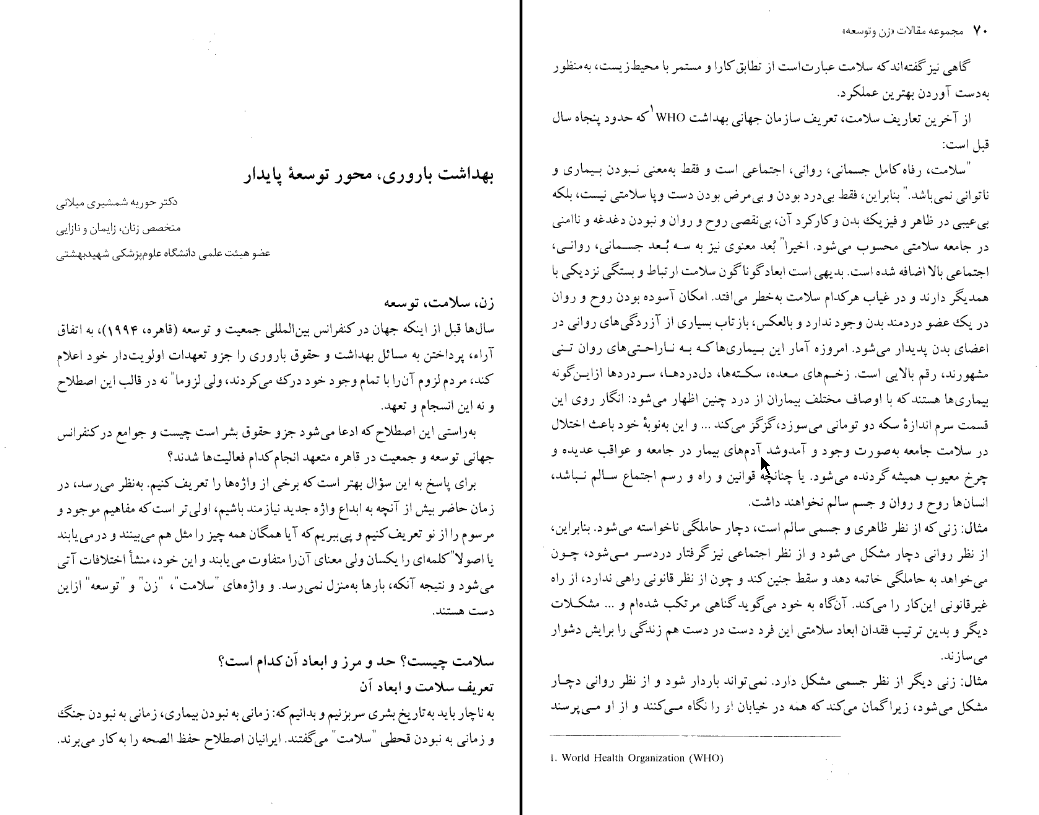 بهداشت باروری، محور توسعهٔ پایدار
دکتر حوریه شمشیری میلانی
متخصص زنان، زایمان و نازایی
عضو هیئت علمی دانشگاه علوم‌پزشکی شهیدبهشتی
زن، سلامت، توسعه
سال‌ها قبل از اینکه جهان در کنفرانس بین‌المللی جمعیت و توسعه (قاهره، ۱۹۹۴)، به اتفاق
آراء، پرداختن به مسائل بهداشت و حقوق باروری را جزو تعهدات اولویت‌دار خود اعلام
کند، مردم لزوم آن‌را با تمام وجود خود درک می‌کردند، ولی لزوما" نه در قالب این اصطلاح
و نه این انسجام و تعهد.
به‌راستی این اصطلاح که ادعا می‌شود جزو حقوق بشر است چیست و جوامع در کنفرانس
جهانی توسعه و جمعیت در قاهره متعهد انجام کدام فعالیت‌ها شدند؟
برای پاسخ به این سؤال بهتر است که برخی از واژه‌ها را تعریف کنیم. به‌نظر می‌رسد، در
زمان حاضر بیش از آنچه به ابداع واژه جدید نیازمند باشیم، اولی‌تر است که مفاهیم موجود و
مرسوم را از نو تعریف کنیم و پی‌ببریم که آیا همگان همه چیز را مثل هم می‌بینند و درمی‌یابند
یا اصولا" کلمه‌ای را یکسان ولی معنای آن‌را متفاوت می‌یابند و این خود، منشأ اختلافات آتی
می‌شود و نتیجه آنکه، بارها به‌منزل نمی‌رسد. و واژه‌های "سلامت"، "زن" و "توسعه" ازاین
دست هستند.
سلامت چیست؟ حد و مرز و ابعاد آن کدام است؟
تعریف سلامت و ابعاد آن
به ناچار باید به‌تاریخ بشری سربزنیم و بدانیم که: زمانی به نبودن بیماری، زمانی به نبودن جنگ
و زمانی به نبودن قحطی "سلامت" می‌گفتند. ایرانیان اصطلاح حفظ الصحه را به کار می‌برند.
۷۰ مجموعه مقالات «زن و توسعه»
گاهی نیز گفته‌اند که سلامت عبارت‌است از تطابق کارا و مستمر با محیط‌زیست، به‌منظور
به‌دست آوردن بهترین عملکرد.
از آخرین تعاریف سلامت، تعریف سازمان جهانی بهداشت WHO¹ که حدود پنجاه سال
قبل است:
"سلامت، رفاه کامل جسمانی، روانی، اجتماعی است و فقط به‌معنی نبودن بیماری و
ناتوانی نمی‌باشد." بنابراین، فقط بی‌درد بودن و بی‌مرض بودن دست و پا سلامتی نیست، بلکه
بی‌عیبی در ظاهر و فیزیک بدن و کارکرد آن، بی‌نقصی روح و روان و نبودن دغدغه و ناامنی
در جامعه سلامتی محسوب می‌شود. اخیرا" بُعد معنوی نیز به سه بُعد جسمانی، روانی،
اجتماعی بالا اضافه شده است. بدیهی است ابعاد گوناگون سلامت ارتباط و بستگی نزدیکی با
همدیگر دارند و در غیاب هرکدام سلامت به‌خطر می‌افتد. امکان آسوده بودن روح و روان
در یک عضو دردمند بدن وجود ندارد و بالعکس، بازتاب بسیاری از آزردگی‌های روانی در
اعضای بدن پدیدار می‌شود. امروزه آمار این بیماری‌ها که به ناراحتی‌های روان تنی
مشهورند، رقم بالایی است. زخم‌های معده، سکته‌ها، دل‌دردها، سردردها ازاین‌گونه
بیماری‌ها هستند که با اوصاف مختلف بیماران از درد چنین اظهار می‌شود: انگار روی این
قسمت سرم اندازهٔ سکه دو تومانی می‌سوزد، گزگز می‌کند ... و این به‌نوبهٔ خود باعث اختلال
در سلامت جامعه به‌صورت وجود و آمدوشد آدم‌های بیمار در جامعه و عواقب عدیده و
چرخ معیوب همیشه گردنده می‌شود. یا چنانچه قوانین و راه و رسم اجتماع سالم نباشد،
انسان‌ها روح و روان و جسم سالم نخواهند داشت.
مثال: زنی که از نظر ظاهری و جسمی سالم است، دچار حاملگی ناخواسته می‌شود. بنابراین،
از نظر روانی دچار مشکل می‌شود و از نظر اجتماعی نیز گرفتار دردسر می‌شود، چون
می‌خواهد به حاملگی خاتمه دهد و سقط جنین کند و چون از نظر قانونی راهی ندارد، از راه
غیرقانونی این‌کار را می‌کند. آن‌گاه به خود می‌گوید گناهی مرتکب شده‌ام و ... مشکلات
دیگر و بدین ترتیب فقدان ابعاد سلامتی این فرد دست در دست هم زندگی را برایش دشوار
می‌سازند.
مثال: زنی دیگر از نظر جسمی مشکل دارد. نمی‌تواند باردار شود و از نظر روانی دچار
مشکل می‌شود، زیرا گمان می‌کند که همه در خیابان او را نگاه می‌کنند و از او می‌پرسند
1. World Health Organization (WHO)